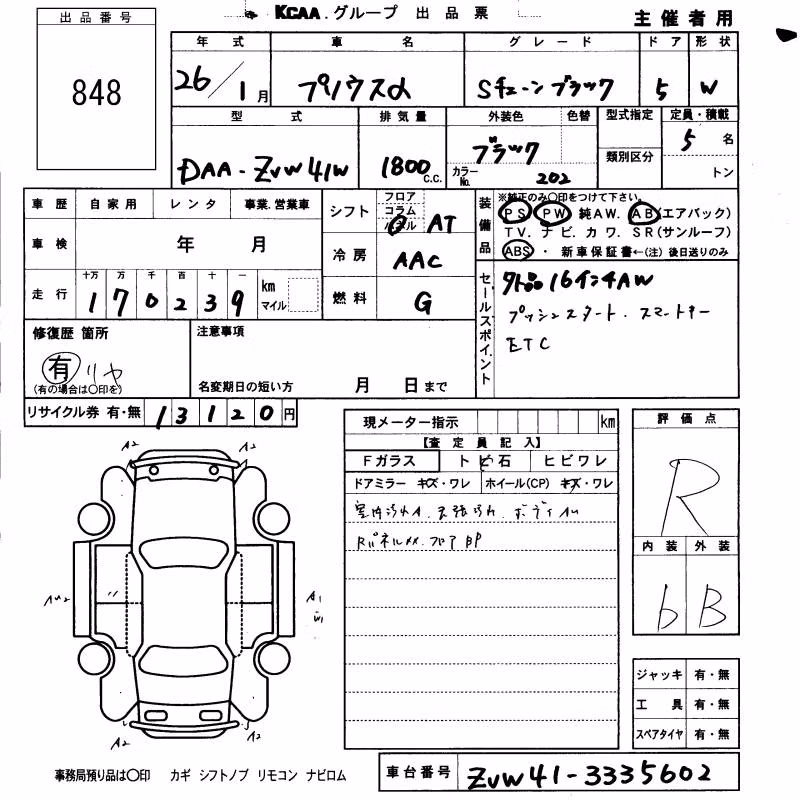 KCAA.グループ 出品票
主催者用
出品番号
848
年式 車名 グレード ドア 形状
26/1月 プリウスα Sチューンブラック 5 W
型式 排気量 外装色 色替 型式指定 定員・積載
DAA-ZVW41W 1800C.C. ブラック 5名
カラーNo. 202 類別区分 トン
車歴 自家用 レンタ 事業.営業車
シフト フロア コラム パネル AT
装備品 ※純正のみ〇印をつけて下さい。
PS PW 純AW. AB(エアバック)
TV. ナビ. カワ. SR(サンルーフ)
ABS・ 新車保証書←(注) 後日送りのみ
車検 年 月
冷房 AAC
走行 十万 万 千 百 十 一 km マイル
170239
燃料 G
セールスポイント
外品16インチAW
プッシュスタート.スマートキー
ETC
修復歴 箇所
有 リヤ
(有の場合は〇印を)
注意事項
名変期日の短い方 月 日まで
リサイクル券 有・無 13120円
現メーター指示 km
【査定員記入】
Fガラス トビ石 ヒビワレ
ドアミラー キズ・ワレ ホイール(CP) キズ・ワレ
評価点
R
内装 外装
b B
A2 A2
A1
W1
A2 A2
ジャッキ 有・無
工具 有・無
スペアタイヤ 有・無
事務局預り品は〇印 カギ シフトノブ リモコン ナビロム
車台番号 ZVW41-3335602